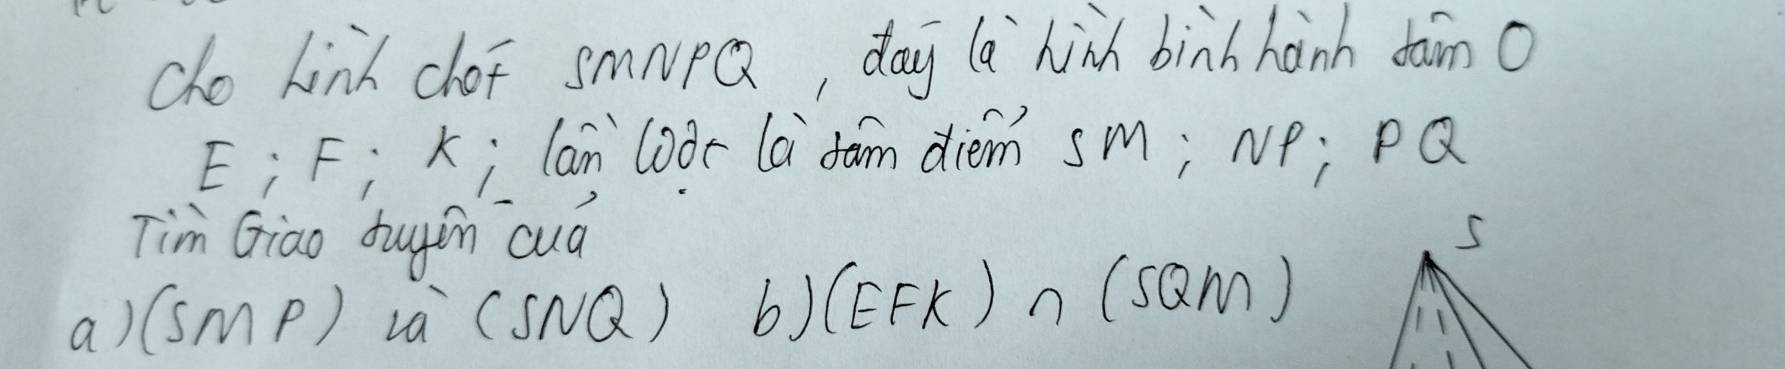 Cho hình chóp SMNPQ, đáy là hình bình hành tâm O
E; F; K; lần lượt là tâm điểm SM; NP; PQ
Tìm Giao tuyến của
a) (SMP) và (SNQ) b) (EFK) ∩ (SQM)
S